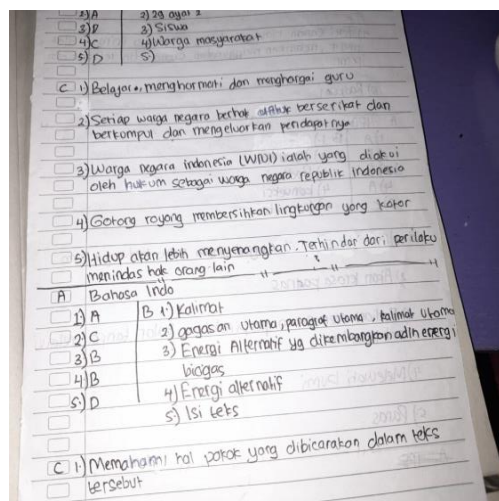 2) A 2) 29 ayat 2
3) D 3) Siswa
4) C 4) Warga masyarakat
5) D 5)
C 1) Belajar, menghormati dan menghargai guru
2) Setiap warga negara berhak berserikat dan
berkumpul dan mengeluarkan pendapatnya
3) Warga negara indonesia (WNI) ialah yang diakui
oleh hukum sebagai warga negara republik Indonesia
4) Gotong royong membersihkan lingkungan yang kotor
5) Hidup akan lebih menyenangkan. Terhindar dari perilaku
menindas hak orang lain
A Bahasa Indo
1) A B 1.) Kalimat
2) C 2) gagasan utama, paragraf utama, kalimat utama
3) B 3) Energi Alternatif yg dikembangkan adlh energi
biogas
4) B 4) Energi alternatif
5.) D 5) Isi teks
C 1.) Memahami hal pokok yang dibicarakan dalam teks
tersebut